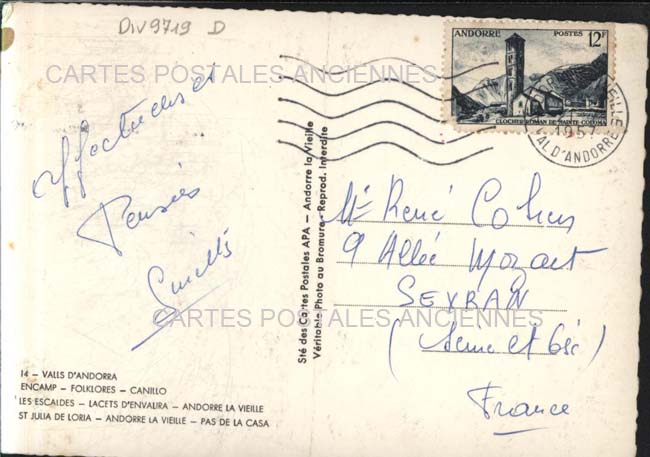 Div9719 D
CARTES POSTALES ANCIENNES
ANDORRE POSTES 12F
CLOCHER ROMAN DE SAINTE-COLOMA
VIEILLE
1957
VAL D'ANDORRE
Affectueuses
Pensées
Sté des Cartes Postales APA — Andorre la Vieille
Véritable Photo au Bromure - Reprod. Interdite
Mr René Cohen
9 Allée Mozart
SEVRAN
(Seine et Oise)
France
CARTES POSTALES ANCIENNES
14 — VALLS D'ANDORRA
ENCAMP — FOLKLORES — CANILLO
LES ESCALDES — LACETS D'ENVALIRA — ANDORRE LA VIEILLE
ST JULIA DE LORIA — ANDORRE LA VIEILLE — PAS DE LA CASA